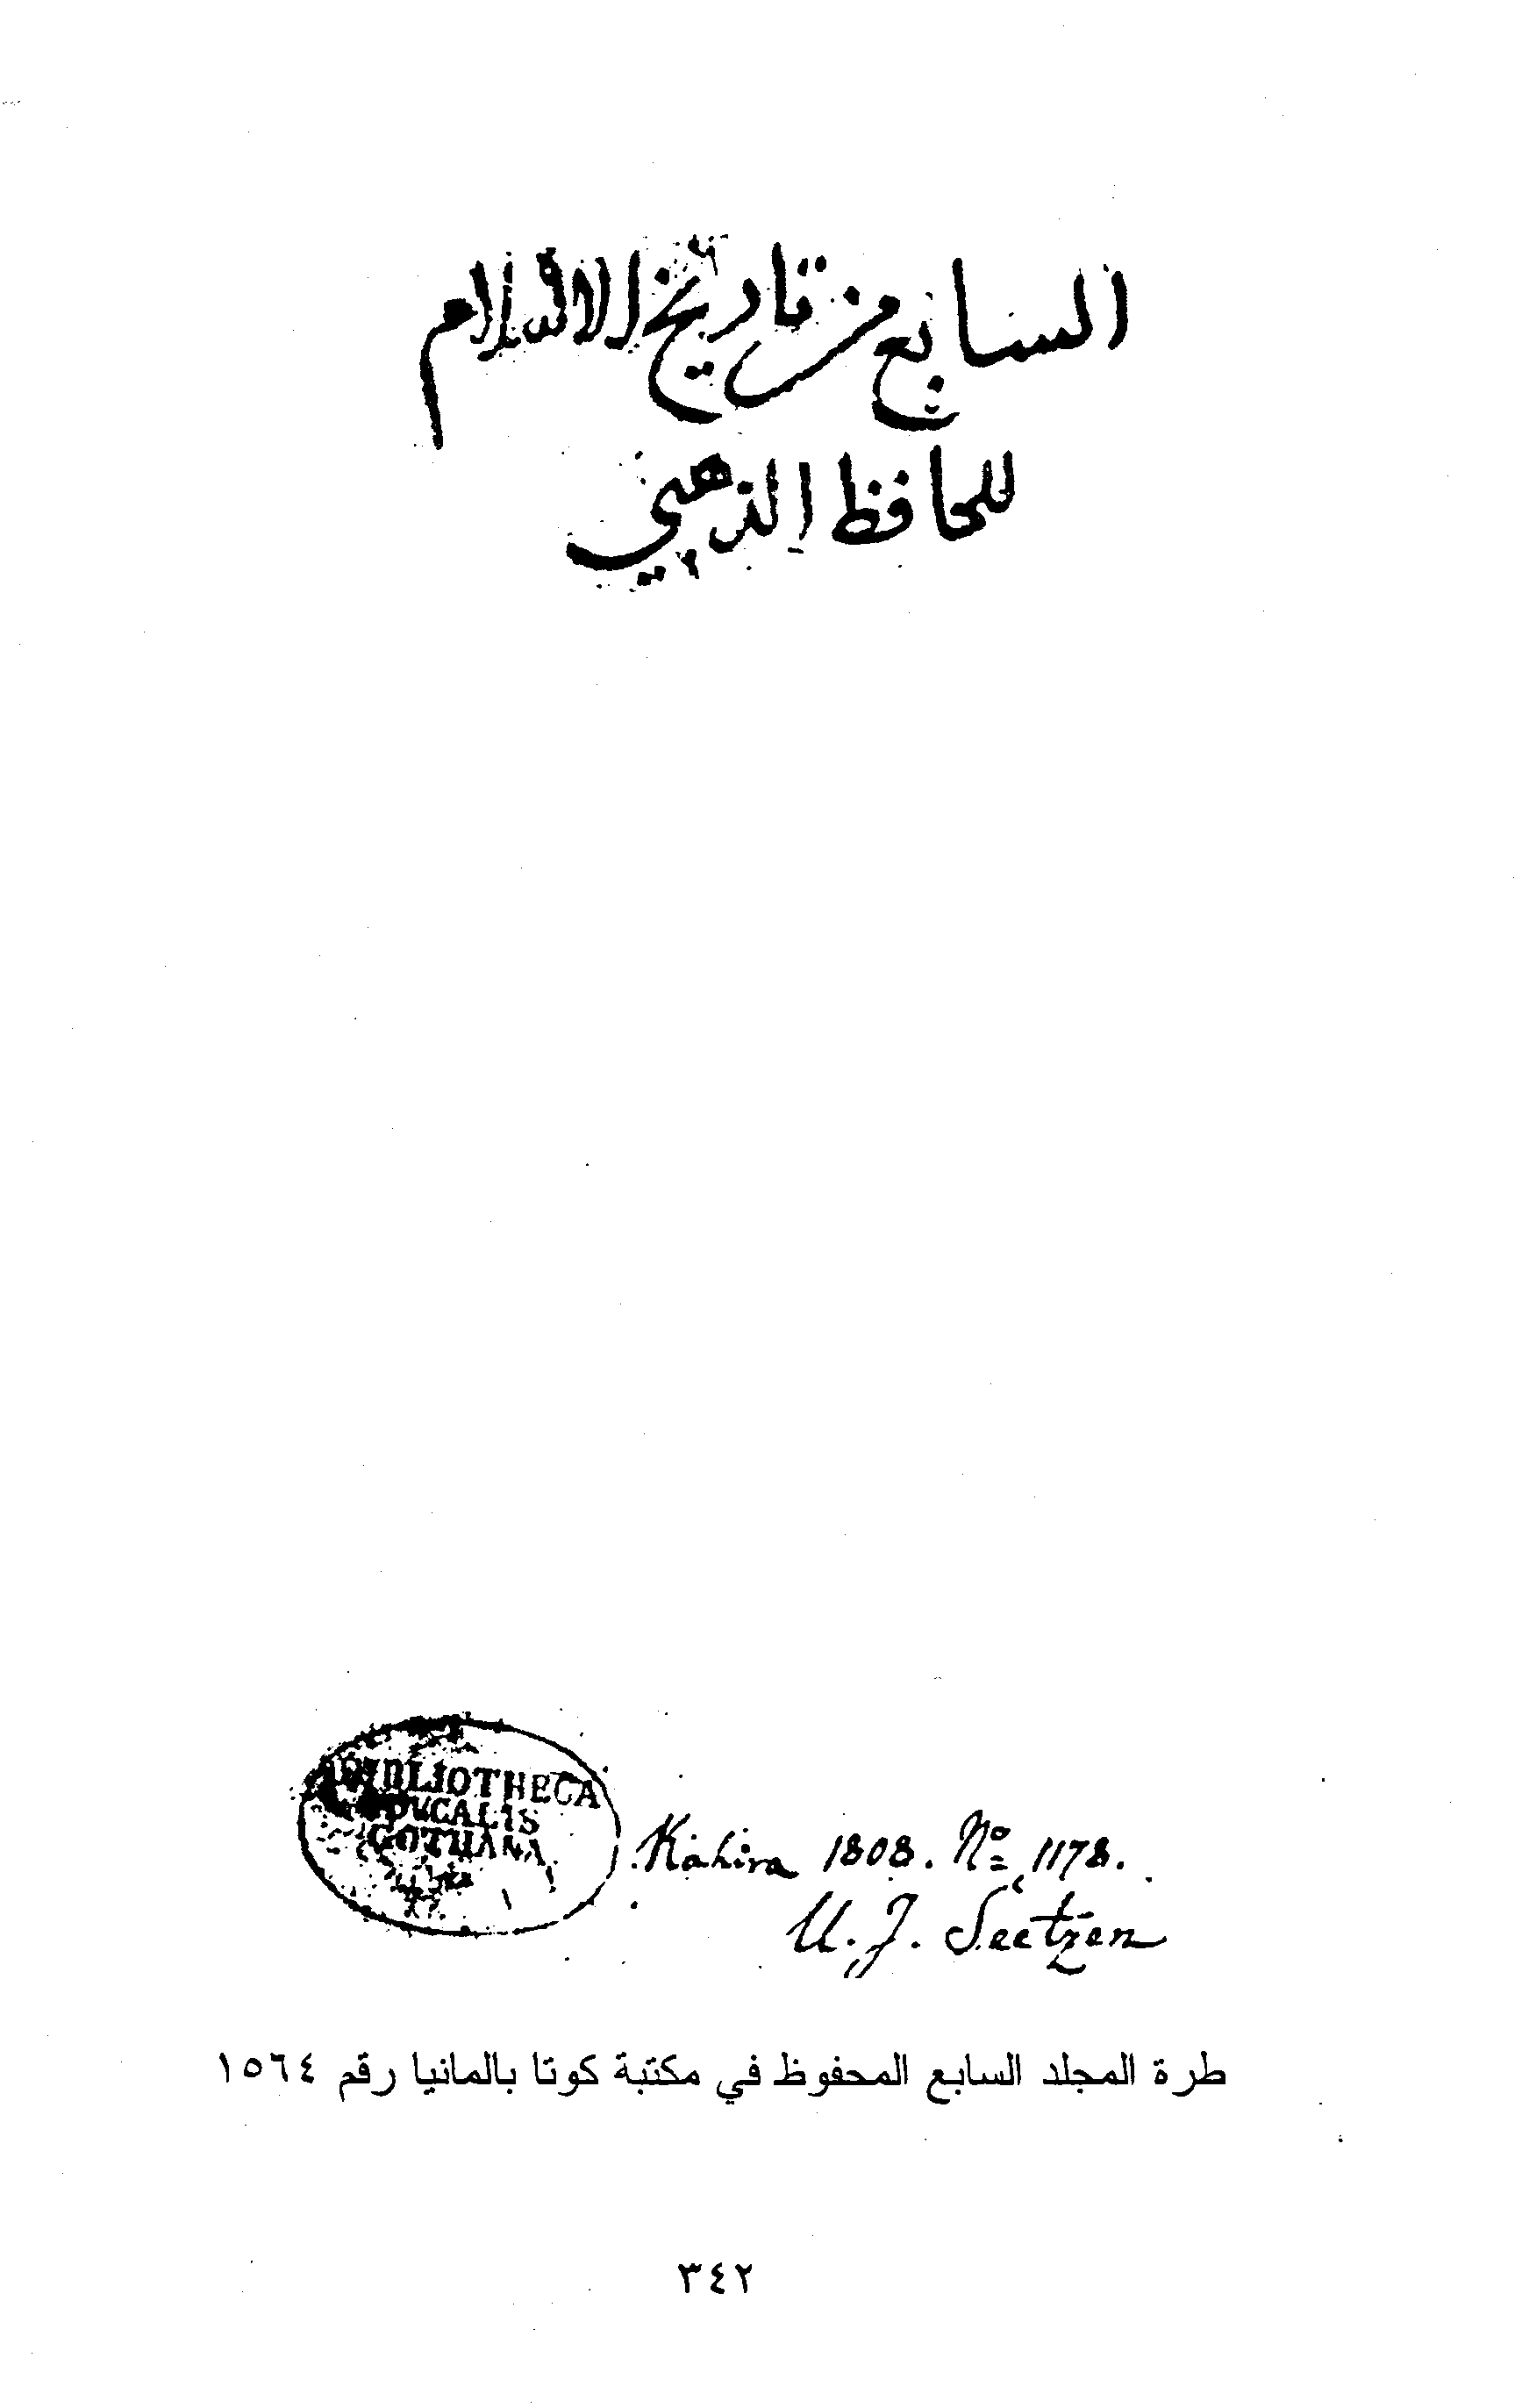 السابع من تاريخ الاسلام
للحافظ الذهبي
BIBLIOTHECA
DUCALIS
GOTHANA
Kahira 1808. No 1178.
U. J. Seetzen
طرة المجلد السابع المحفوظ في مكتبة كوتا بالمانيا رقم ١٥٦٤
٣٤٢